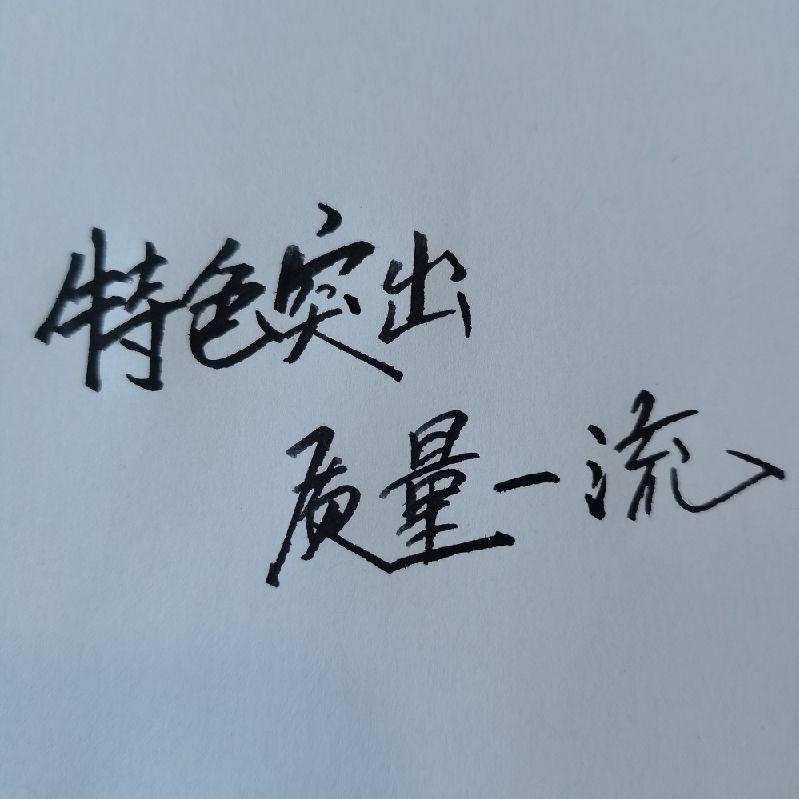 特色突出
质量一流